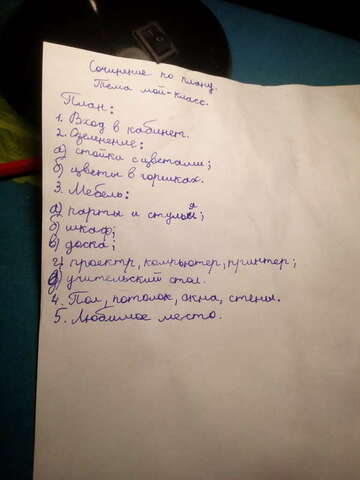 Сочинение по плану.
Тема мой-класс.
План:
1. Вход в кабинет.
2. Озелнение:
а) стойки с цветами;
б) цветы в горшках.
3. Мебель:
а) парты и стулья;
б) шкаф;
в) доска;
г) проектр, компьютер, принтер;
д) учительский стол.
4. Пол, потолок, окна, стены.
5. Любимое место.